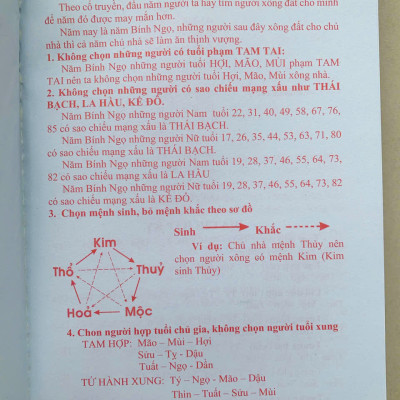 Theo cổ truyền, đầu năm người ta hay tìm người xông đất cho mình
để năm đó được may mắn hơn.
Năm nay là năm Bính Ngọ, những người sau đây xông đất cho chủ
nhà thì cả năm chủ nhà sẽ làm ăn thịnh vượng.
1. Không chọn những người có tuổi phạm TAM TAI:
Năm Bính Ngọ những người tuổi HỢI, MÃO, MÙI phạm TAM
TAI nên ta không chọn những người tuổi Hợi, Mão, Mùi xông nhà.
2. Không chọn những người có sao chiếu mạng xấu như THÁI
BẠCH, LA HẦU, KẾ ĐÔ.
Năm Bính Ngọ những người Nam tuổi 22, 31, 40, 49, 58, 67, 76,
85 có sao chiếu mạng xấu là THÁI BẠCH.
Năm Bính Ngọ những người Nữ tuổi 17, 26, 35, 44, 53, 63, 71, 80
có sao chiếu mạng xấu là THÁI BẠCH.
Năm Bính Ngọ những người Nam tuổi 19, 28, 37, 46, 55, 64, 73,
82 có sao chiếu mạng xấu là LA HẦU
Năm Bính Ngọ những người Nữ tuổi 19, 28, 37, 46, 55, 64, 73, 82
có sao chiếu mạng xấu là KẾ ĐÔ.
3. Chọn mệnh sinh, bỏ mệnh khắc theo sơ đồ
Kim
Thổ
Thuỷ
Hoả
Mộc
Sinh
Khắc
Ví dụ: Chủ nhà mệnh Thủy nên
chọn người xông có mệnh Kim (Kim
sinh Thủy)
4. Chon người hợp tuổi chủ gia, không chọn người tuổi xung
TAM HỢP: Mão – Mùi – Hợi
Sửu – Tỵ - Dậu
Tuất – Ngọ - Dần
TỨ HÀNH XUNG: Tý – Ngọ - Mão – Dậu
Thìn – Tuất – Sửu – Mùi